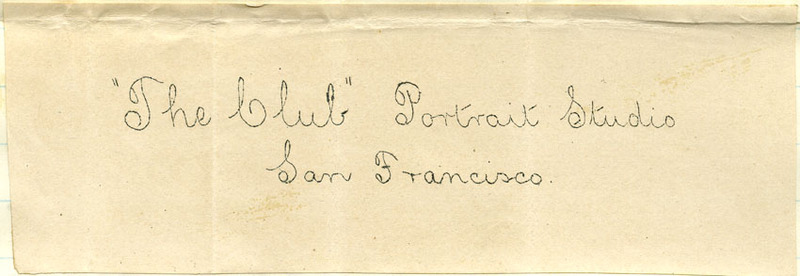 "The Club" Portrait Studio
San Francisco.